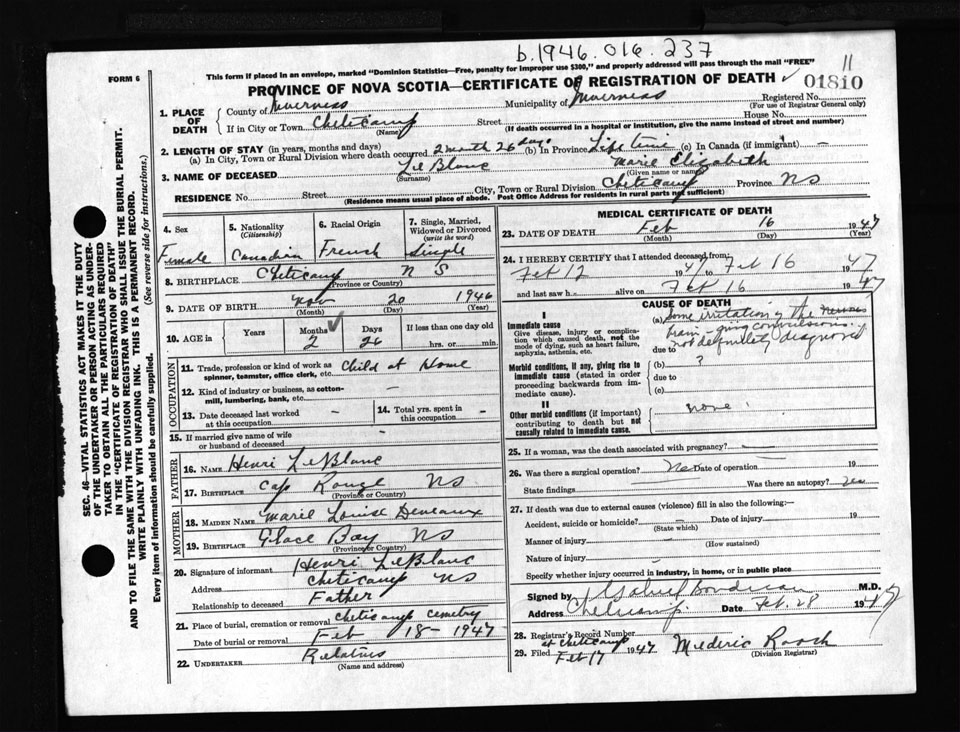 b.1946.016.237
11
FORM 6
This form if placed in an envelope, marked "Dominion Statistics—Free, penalty for improper use $300," and properly addressed will pass through the mail "FREE"
PROVINCE OF NOVA SCOTIA—CERTIFICATE OF REGISTRATION OF DEATH 01810
1. PLACE OF DEATH County of Inverness Municipality of Inverness Registered No.
(For use of Registrar General only)
If in City or Town Cheticamp Street House No.
(If death occurred in a hospital or institution, give the name instead of street and number)
2. LENGTH OF STAY (in years, months and days)
(a) In City, Town or Rural Division where death occurred 2 month 26 days (b) In Province Life time (c) In Canada (if immigrant) —
3. NAME OF DECEASED LeBlanc Marie Elizabeth
(Surname) (Given name or names)
RESIDENCE No. Street City, Town or Rural Division Cheticamp Province NS
(Residence means usual place of abode. Post Office Address for residents in rural parts not sufficient)
4. Sex 5. Nationality (Citizenship) 6. Racial Origin 7. Single, Married, Widowed or Divorced (write the word)
Female Canadian French Single
8. BIRTHPLACE Cheticamp N S
(Province or Country)
9. DATE OF BIRTH Nov 20 1946
(Month) (Day) (Year)
10. AGE in Years Months Days If less than one day old
2 26 hrs. or min.
OCCUPATION
11. Trade, profession or kind of work as spinner, teamster, office clerk, etc. Child at Home
12. Kind of industry or business, as cotton-mill, lumbering, bank, etc. —
13. Date deceased last worked at this occupation — 14. Total yrs. spent in this occupation —
15. If married give name of wife or husband of deceased —
FATHER
16. NAME Henri LeBlanc
17. BIRTHPLACE Cap Rouge NS
(Province or Country)
MOTHER
18. MAIDEN NAME Marie Louise Deveaux
19. BIRTHPLACE Glace Bay NS
(Province or Country)
20. Signature of informant Henri LeBlanc
Address Cheticamp NS
Relationship to deceased Father
21. Place of burial, cremation or removal Cheticamp cemetry
Date of burial or removal Feb 18 - 1947
22. UNDERTAKER Relatives
(Name and address)
MEDICAL CERTIFICATE OF DEATH
23. DATE OF DEATH Feb 16 1947
(Month) (Day) (Year)
24. I HEREBY CERTIFY that I attended deceased from:
Feb 12 1947 to Feb 16 1947
and last saw h alive on Feb 16 1947
CAUSE OF DEATH
I
Immediate cause
Give disease, injury or complication which caused death, not the mode of dying, such as heart failure, asphyxia, asthenia, etc.
(a) Some irritation of the
brain - giving convulsions.
due to not definitely diagnosed
Morbid conditions, if any, giving rise to immediate cause (stated in order proceeding backwards from immediate cause).
(b) ?
due to
(c)
II
Other morbid conditions (if important) contributing to death but not causally related to immediate cause.
none
25. If a woman, was the death associated with pregnancy? —
26. Was there a surgical operation? No Date of operation 19
State findings — Was there an autopsy?
27. If death was due to external causes (violence) fill in also the following:—
Accident, suicide or homicide? — Date of injury 19
(State which)
Manner of injury —
(How sustained)
Nature of injury —
Specify whether injury occurred in industry, in home, or in public place
Signed by M.D.
Address Cheticamp. Date Feb. 28 1947
28. Registrar's Record Number
at Cheticamp
29. Filed Feb 17 1947 Mederic Roach
(Division Registrar)
SEC. 46—VITAL STATISTICS ACT MAKES IT THE DUTY
OF THE UNDERTAKER OR PERSON ACTING AS UNDER-
TAKER TO OBTAIN ALL THE PARTICULARS REQUIRED
IN THE "CERTIFICATE OF REGISTRATION OF DEATH"
AND TO FILE THE SAME WITH THE DIVISION REGISTRAR WHO SHALL ISSUE THE BURIAL PERMIT.
WRITE PLAINLY WITH UNFADING INK. THIS IS A PERMANENT RECORD.
Every item of Information should be carefully supplied. (See reverse side for instructions.)